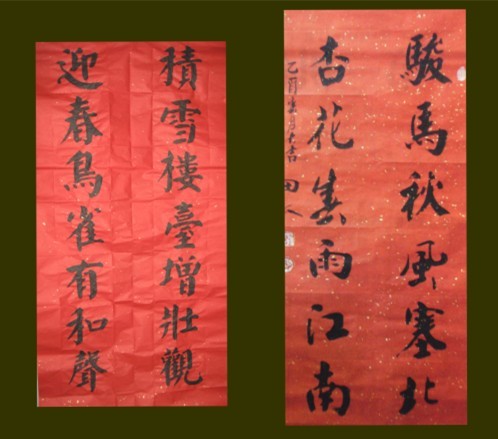 積雪樓臺增壯觀
迎春鳥雀有和聲
駿馬秋風塞北
杏花春雨江南